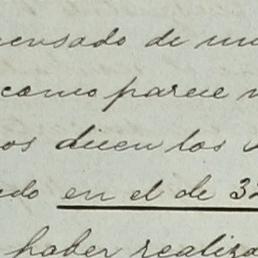 pensado de un
como parece
os dicen los
edo en el de 32
haber realiza